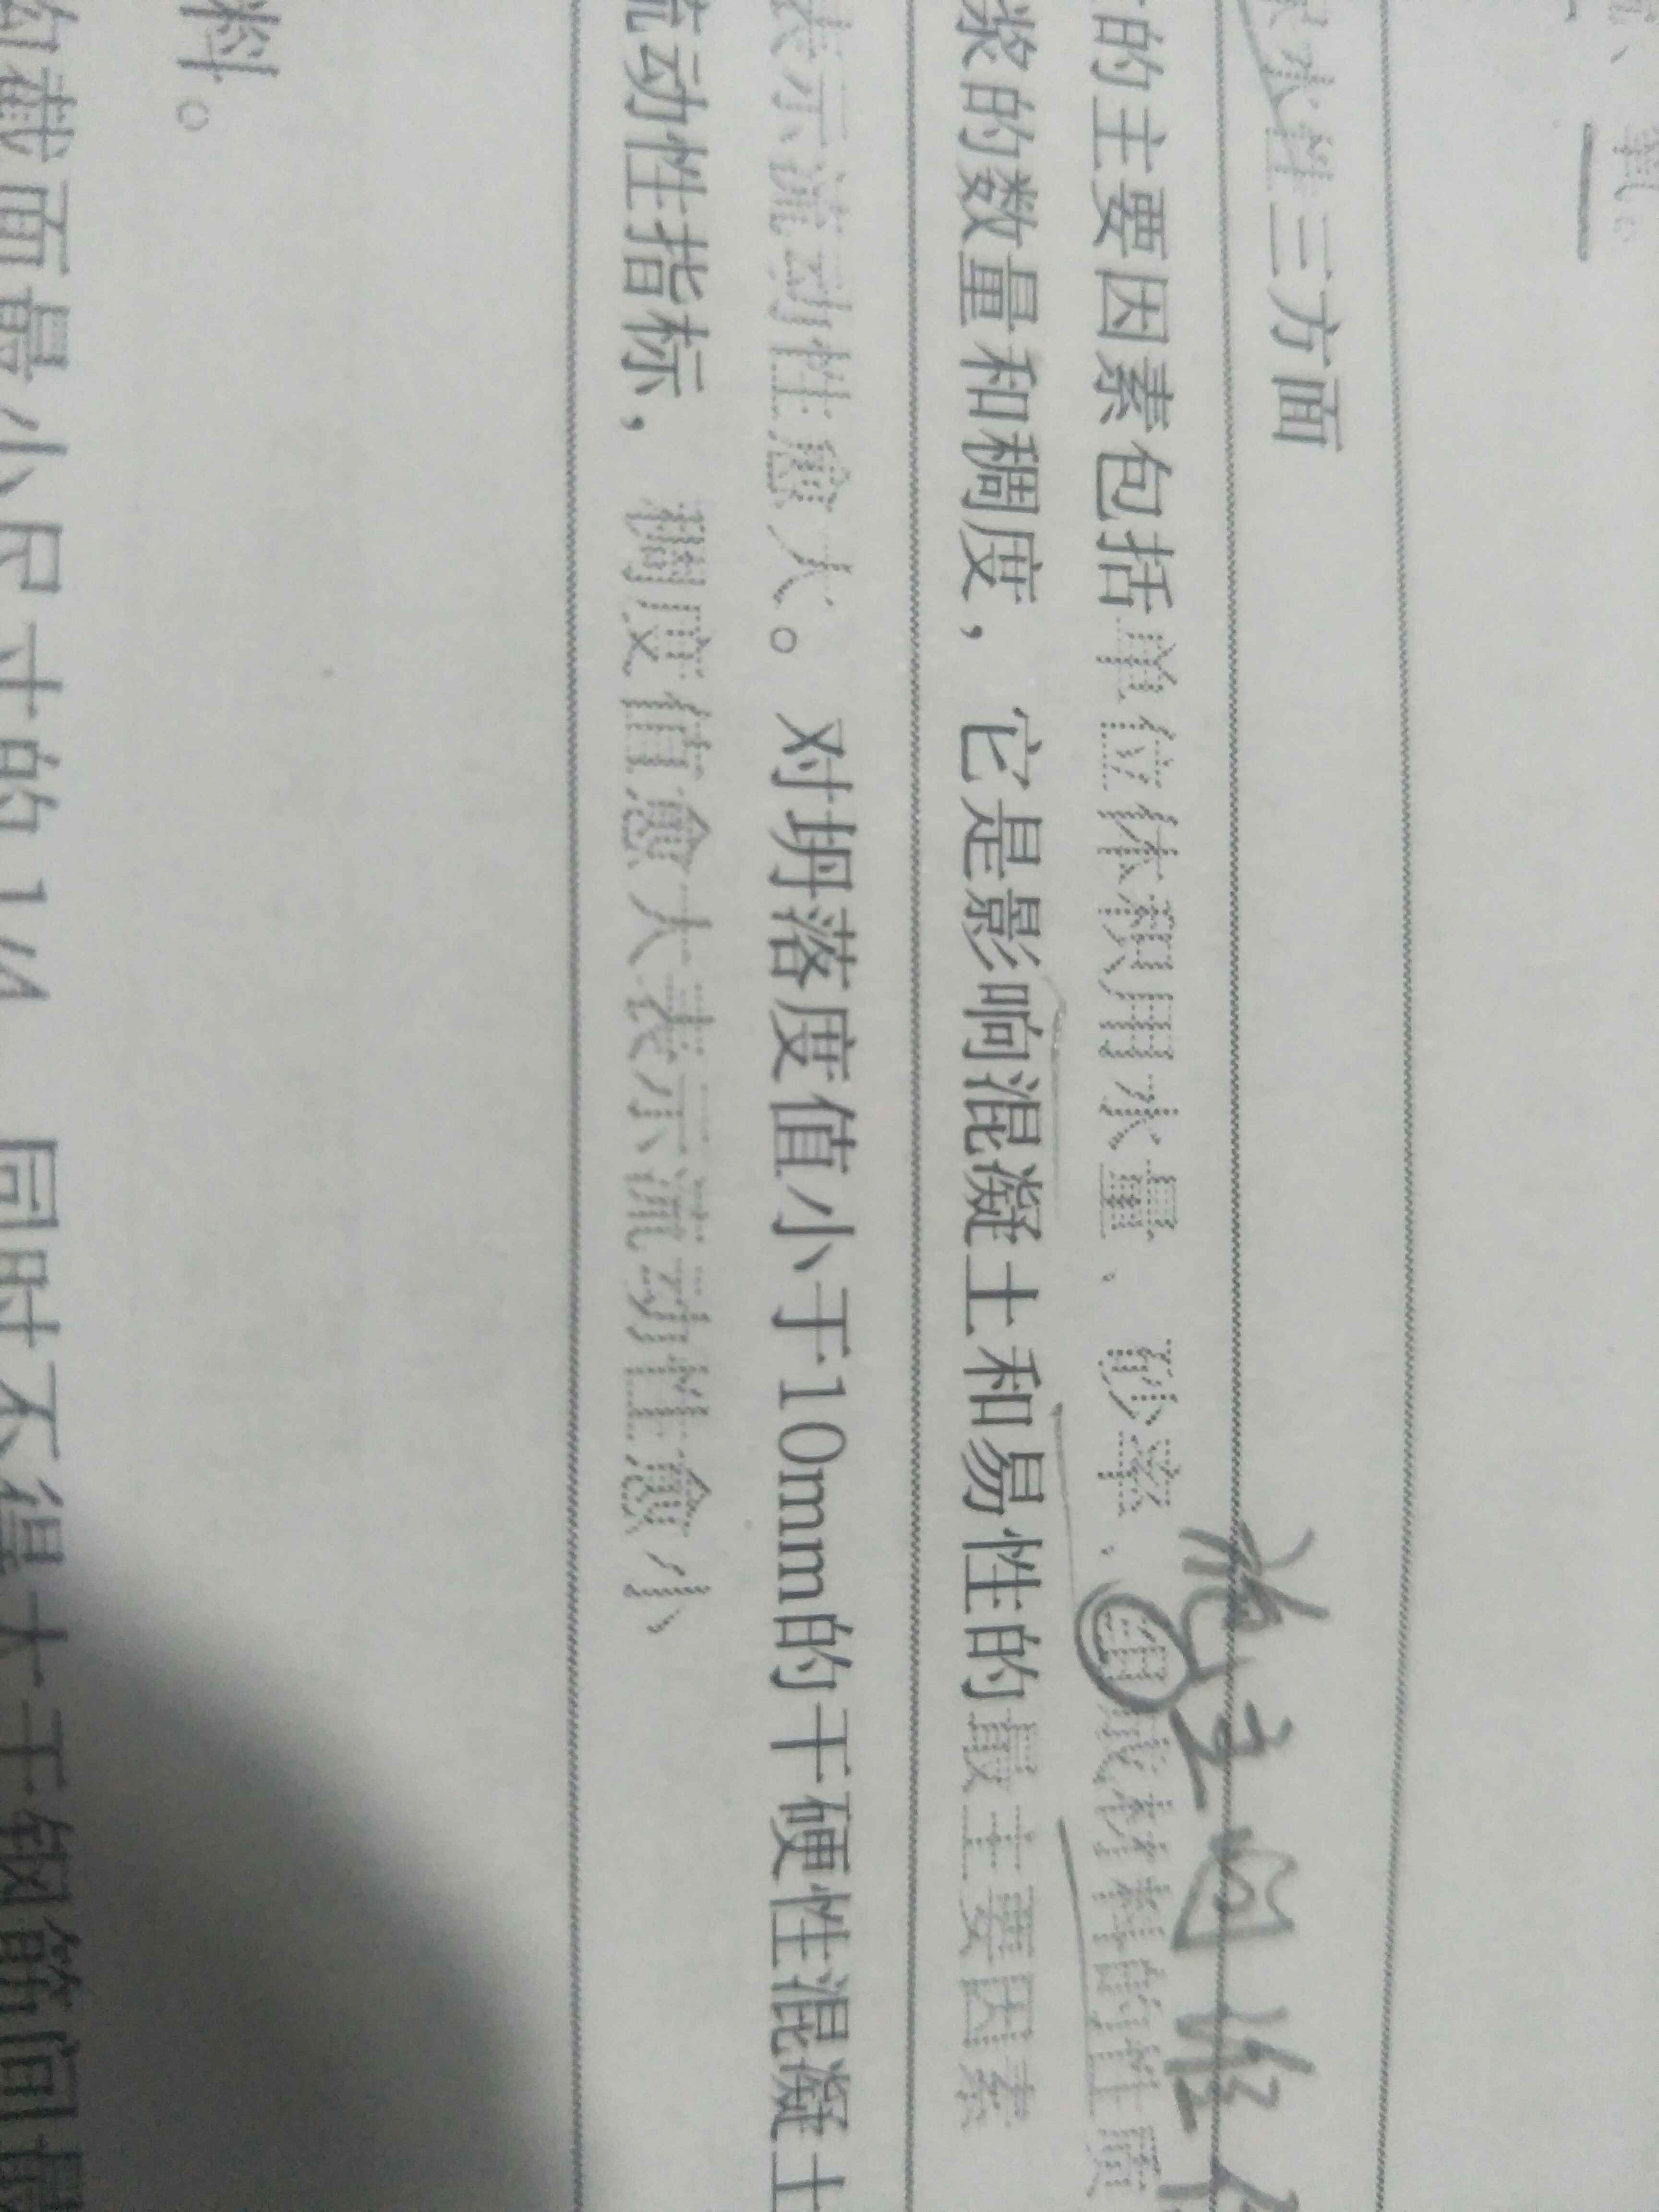 氧。
水性三方面
的主要因素包括单位体积用水量、砂率、组成材料的性质
浆的数量和稠度，它是影响混凝土和易性的最主要因素
表示流动性愈大。对坍落度值小于10mm的干硬性混凝土
流动性指标，稠度值愈大表示流动性愈小
料。
截面最小尺寸的1/4 同时不得大于钢筋间最